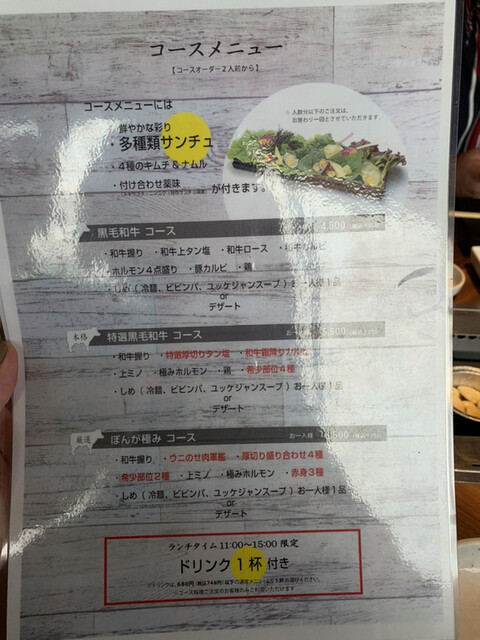 コースメニュー
【コースオーダー2人前から】
コースメニューには
・鮮やかな彩り
多種類サンチュ
・4種のキムチ&ナムル
・付け合わせ薬味
が付きます。
※人数分以下のご注文は、
お替わり一回とさせていただきます。
黒毛和牛 コース 4,500
・和牛握り ・和牛上タン塩 ・和牛ロース ・和牛カルビ
・ホルモン4点盛り ・豚カルビ ・鶏
・しめ(冷麺、ビビンバ、ユッケジャンスープ)お一人様1品
or
デザート
本格
特選黒毛和牛 コース お一人様 5,500
・和牛握り ・特選厚切りタン塩 ・和牛霜降りカルビ
・上ミノ ・極みホルモン ・鶏 ・希少部位4種
・しめ(冷麺、ビビンバ、ユッケジャンスープ)お一人様1品
or
デザート
厳選
ぼんが極み コース お一人様 ,500
・和牛握り ・ウニのせ肉軍艦 ・厚切り盛り合わせ4種
・希少部位2種 ・上ミノ ・極みホルモン ・赤身3種
・しめ(冷麺、ビビンバ、ユッケジャンスープ)お一人様1品
or
デザート
ランチタイム 11:00〜15:00 限定
ドリンク1杯付き
※ドリンクは、680円(税込748円)以下の通常メニューより1杯お選びください。
※コース料理ご注文のお客様のみご利用いただけます